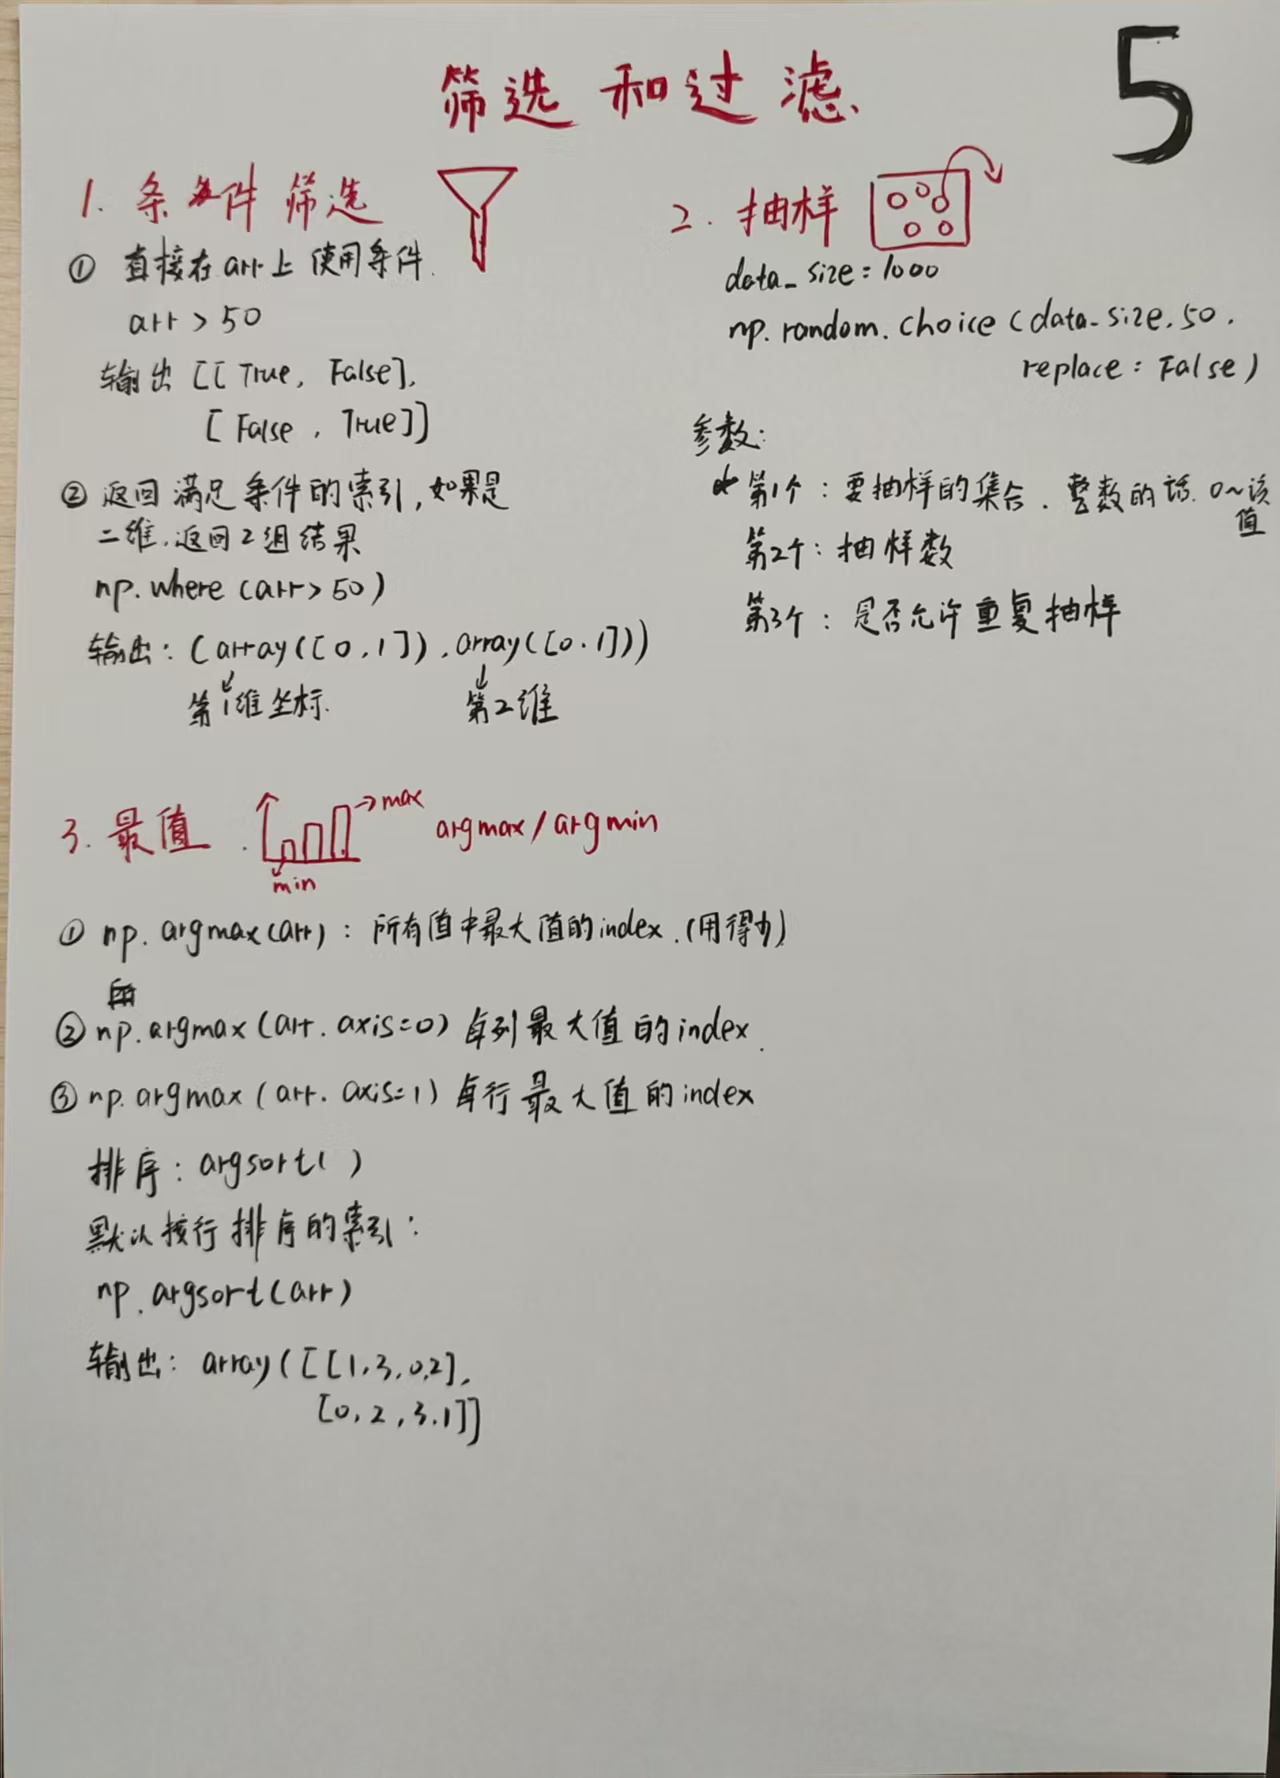 筛选和过滤
5
1. 条件筛选
① 直接在arr上使用条件.
arr > 50
输出 [[True, False],
[False, True]]
② 返回满足条件的索引,如果是
二维,返回2组结果
np.where(arr>50)
输出: (array([0,1]),array([0.1]))
第1维坐标.
第2维
2. 抽样
data_size=1000
np.random.choice(data_size,50,
replace=False)
参数:
第1个:要抽样的集合.整数的话.0~该
值
第2个:抽样数
第3个:是否允许重复抽样
3. 最值
max
min
argmax/argmin
① np.argmax(arr):所有值中最大值的index.(用得少)
② np.argmax(arr.axis=0) 每列最大值的index.
③ np.argmax(arr.axis=1) 每行最大值的index
排序:argsort()
默认按行排序的索引:
np.argsort(arr)
输出: array([[1,3,0,2],
[0,2,3,1]]